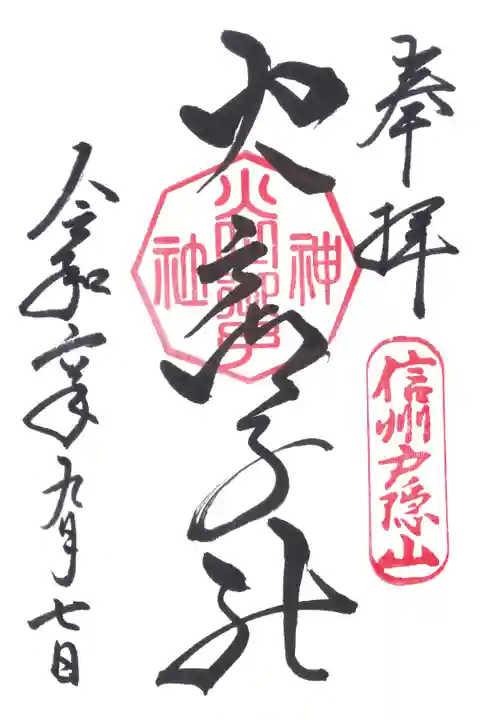 奉拝
信州戸隠山
火之御子社
神
火之御子
社
令和六年九月七日